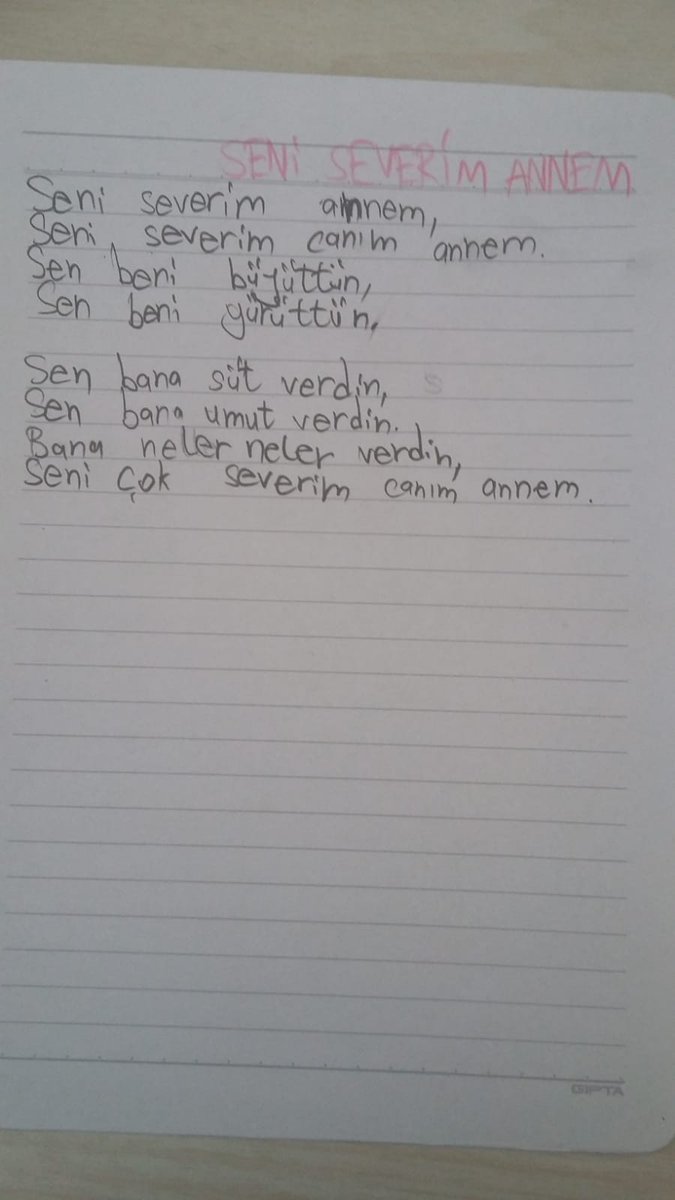 SENİ SEVERİM ANNEM
Seni severim annem,
Seni severim canım annem.
Sen beni büyüttün,
Sen beni gürüttün,
Sen bana süt verdin,
Sen bana umut verdin.
Bana neler neler verdin,
Seni çok severim canım annem.
GIPTA